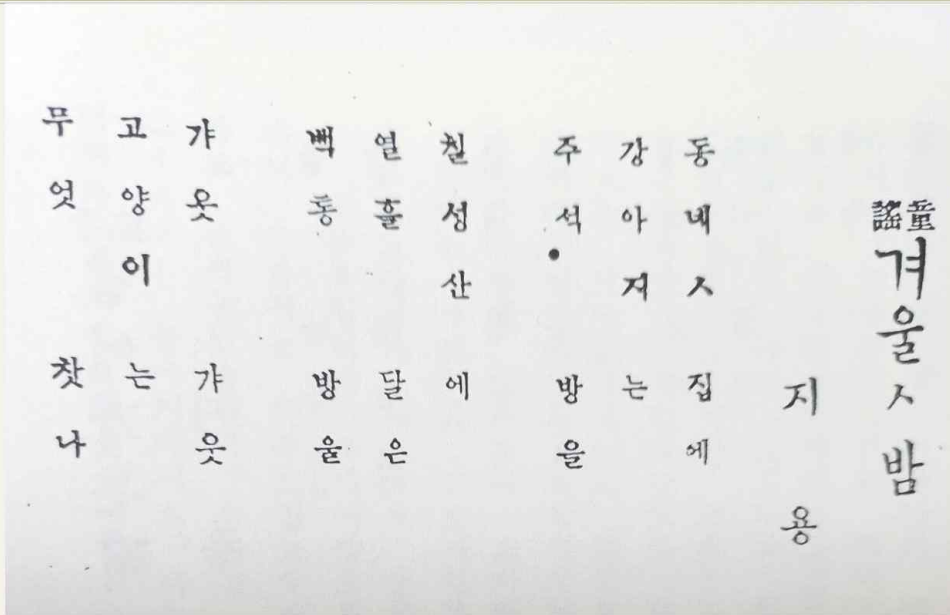 童謠 겨울ㅅ밤
지용
동네ㅅ집에
강아지는
주석 방울
칠성산에
열흘 달은
백통 방울
갸웃 갸웃
고양이는
무엇 찾나